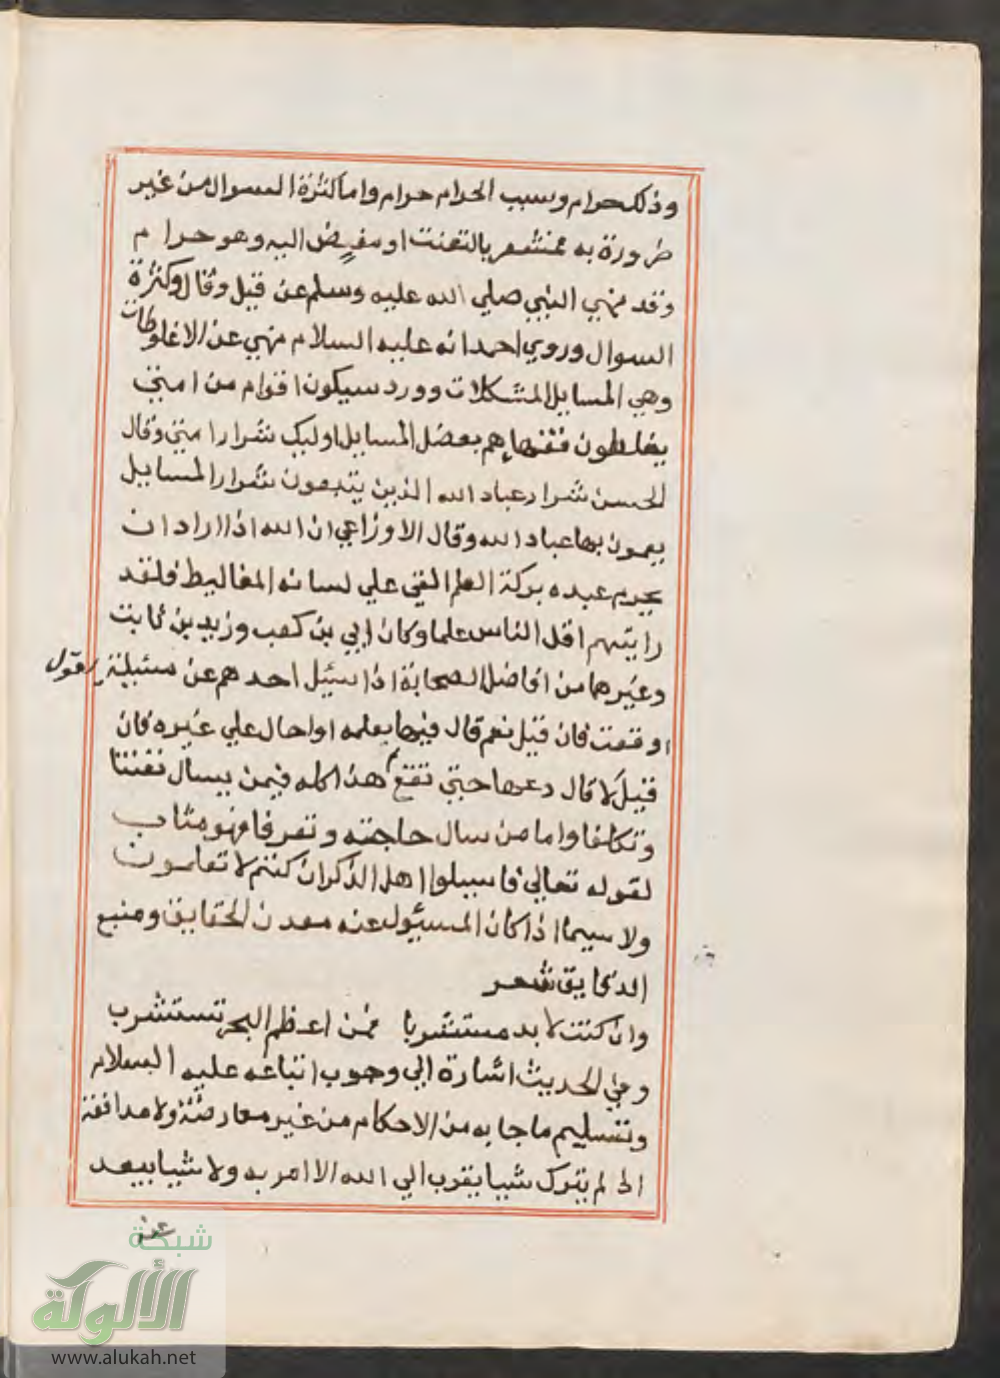 وذلك حرام وسبب الحرام حرام واما كثرة السوال من غير
ضرورة به فمشعر بالتعنت او مفيض اليه وهو حرام
وقد نهي النبي صلي الله عليه وسلم عن قيل وقال وكثرة
السوال وروي احمد انه عليه السلام نهي عن الاغلوطات
وهي المسايل المشكلات وورد سيكون اقوام من امتي
يغلطون فقهاءهم بعضل المسايل اوليك شرار امتي وقال
الحسن شرار عباد الله الذين يتبعون شرار المسايل
يعمون بها عباد الله وقال الاوزاعي ان الله اذا اراد ان
يحرم عبده بركة العلم القي علي لسانه المغاليط فلقد
رايتهم اقل الناس علما وكان ابي بن كعب وزيد بن ثابت
وغيرهما من افاضل الصحابة اذا سئيل احدهم عن مسئيلة يقول
اوقعت فان قيل نعم قال فيها بعلمه او احال علي غيره فان
قيل لا قال دعها حتي تقع هذا كله فيمن يسال تعنتا
وتكلفا واما من سال حاجته وتعرفا فهو مثاب
لقوله تعالي فاسيلوا اهل الذكر ان كنتم لا تعلمون
ولا سيما اذا كان المسئيول عنه معدن الحقايق ومنبع
الدقايق شعر
وان كنت لا بد مستشربا فمن اعظم البحر تستشرب
وفي الحديث اشارة الي وجوب اتباعه عليه السلام
وتسليم ما جا به من الاحكام من غير معارضة ولا مدافعة
اذ لم يترك شييا يقرب الي الله الا امر به ولا شييا يبعد
عن
شبكة
الألوكة
www.alukah.net